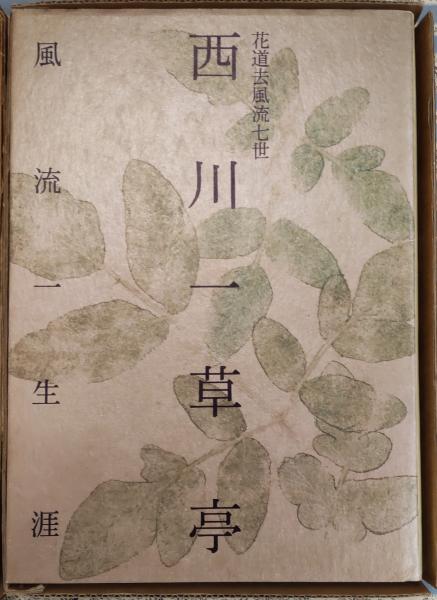 花道去風流七世
西川一草亭
風流一生涯